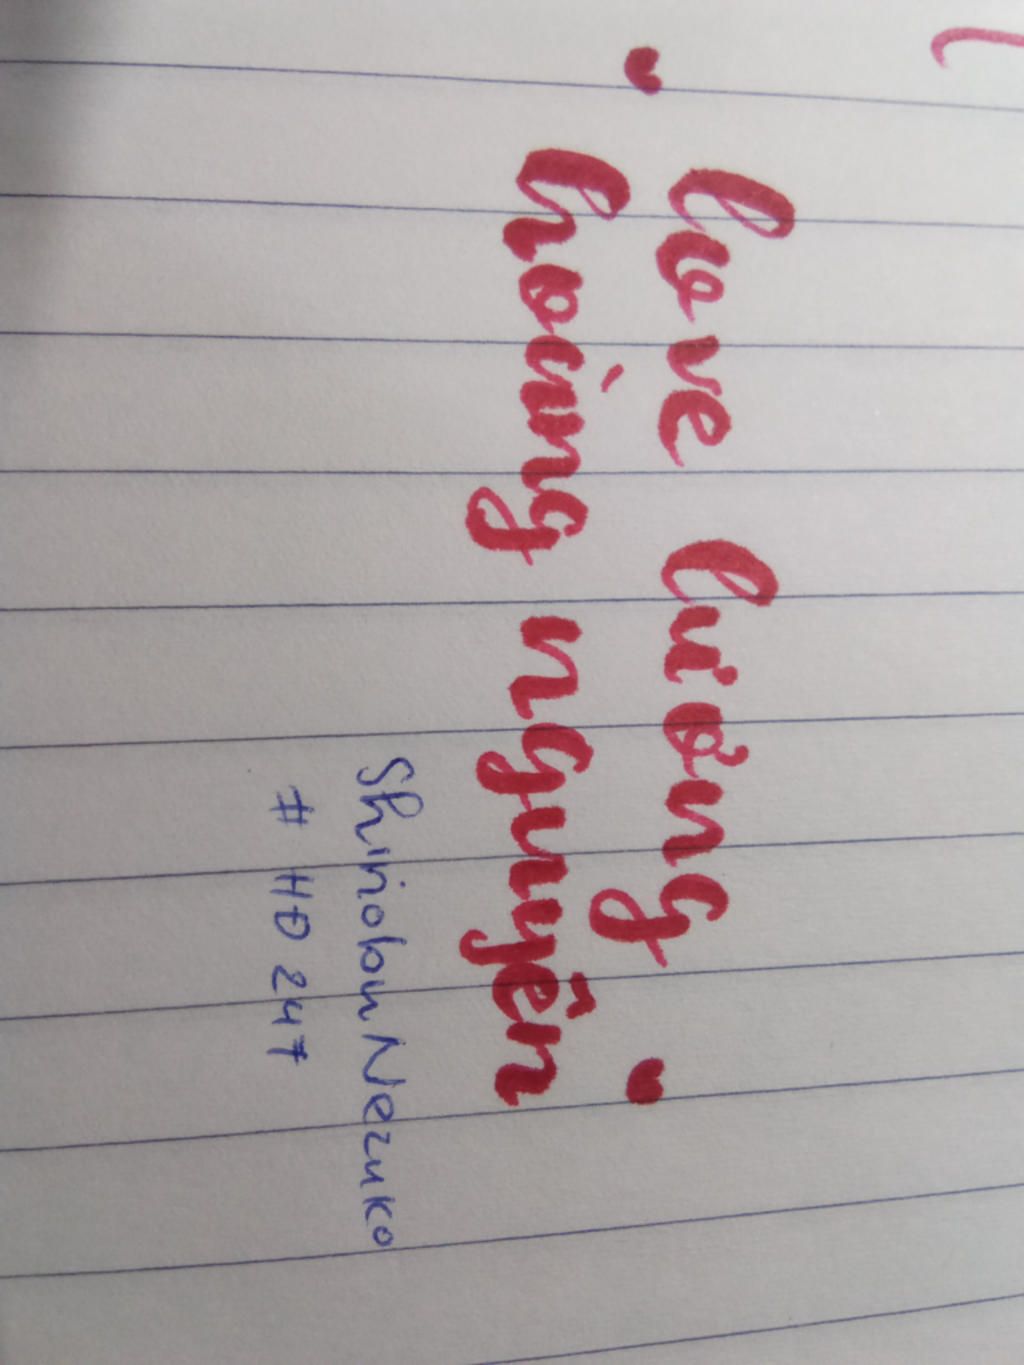 love lương
hoàng nguyên
Shiriobu Nezuko
# HĐ 247